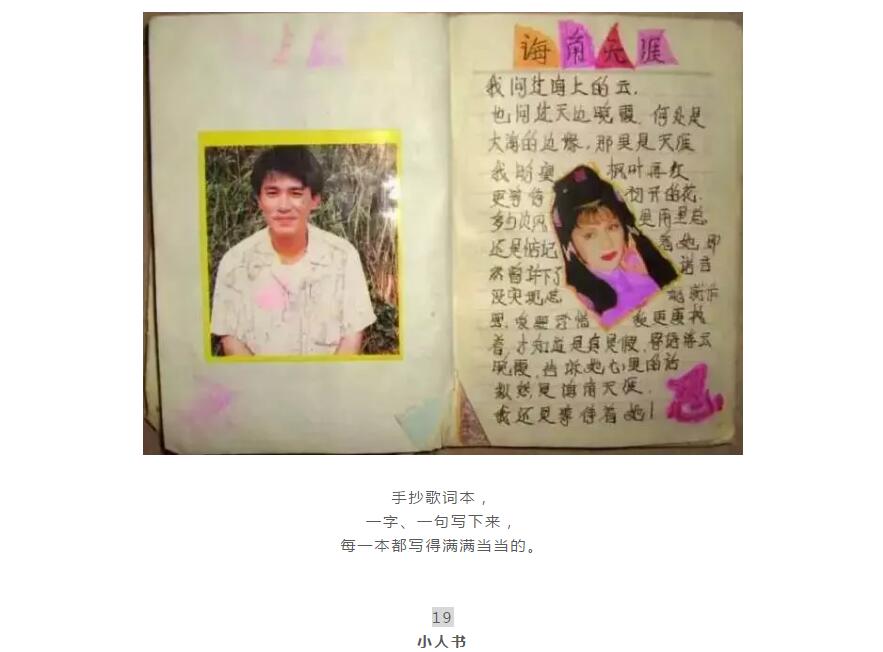 海角天涯
我问过海上的云,
也问过天边晚霞,何处是
大海的边缘,那里是天涯
我盼望 枫叶再红
更等待 初开的花,
多少次风 里雨里总
还是惦记着她,即
然曾许下了 诺言
没实现
要珍惜 我更要
着,才知道是真是假,
晚霞,告诉她心里的话
纵然是海角天涯,
我还是等待着她!
手抄歌词本,
一字、一句写下来,
每一本都写得满满当当的。
19
小人书